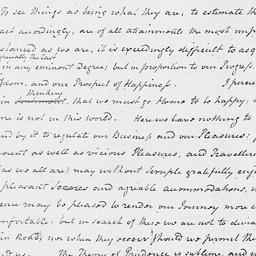 To see things as being what they are, to estimate th
act accordingly, are of all attainments the most imp
stanced as we are, it is exceedingly difficult to acq
especially the last
in any eminent Degree; but in proportion to our Progress
dom, and our Prospect of Happiness. I perce
thinking
in that we must go Home to be happy, a
me is not in this world. Here we have nothing to
and by it to regulate our Business and our Pleasures:
ount as well as vicious Pleasures, and Travellers
(as we all are) may without Scruple gratefully enjoy
pleasant Scenes and agreable accommodations, w
ence may be pleased to render our Journey more c
omfortable; but in search of these we are not to devia
in Road; nor when they occur should we permit the
The Theory of Prudence is sublime, and in